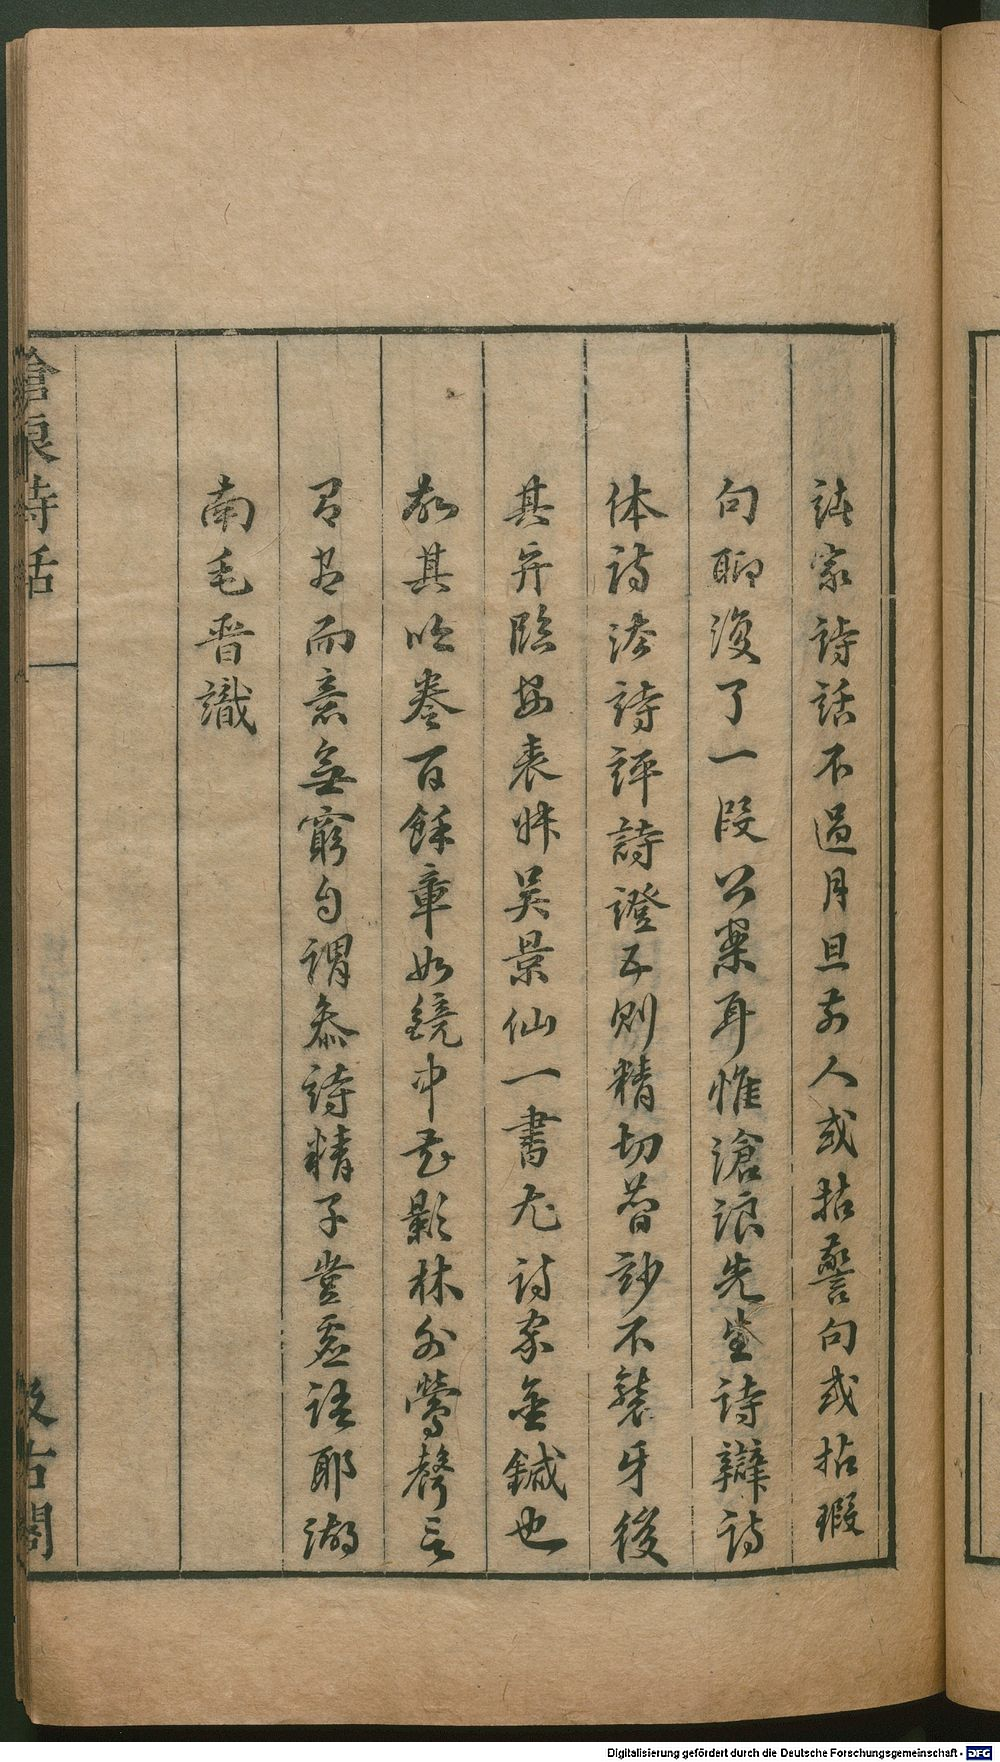 諸家詩話不過月旦前人或拈警句或拈瑕
句聊復了一段公案耳惟滄浪先生詩辯詩
体詩法詩評詩證五則精切簡妙不襲牙後
其并臨安表叔吳景仙一書尤詩家金鍼也
故其吟卷百餘章如鏡中花影林外鶯聲言
有尽而意無窮自謂參詩精子豈虛語耶湖
南毛晋識
滄浪詩話
汲古閣
Digitalisierung gefördert durch die Deutsche Forschungsgemeinschaft - DFG